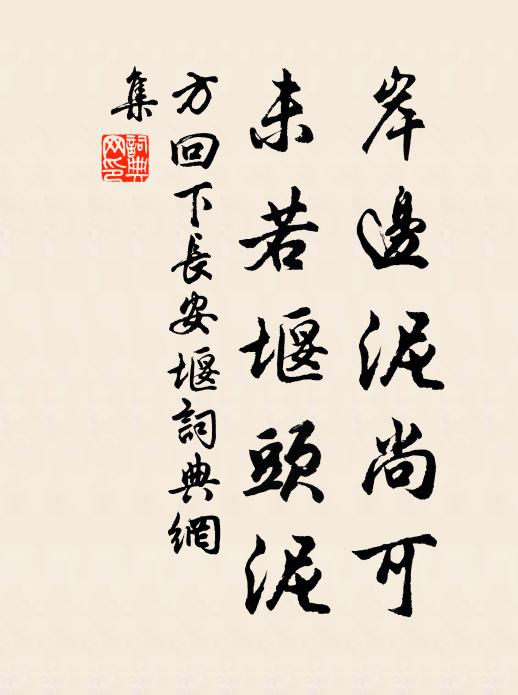 岸邊泥尚可
未若堰頭泥
方回下長安堰詞典網
集
詞典
网印